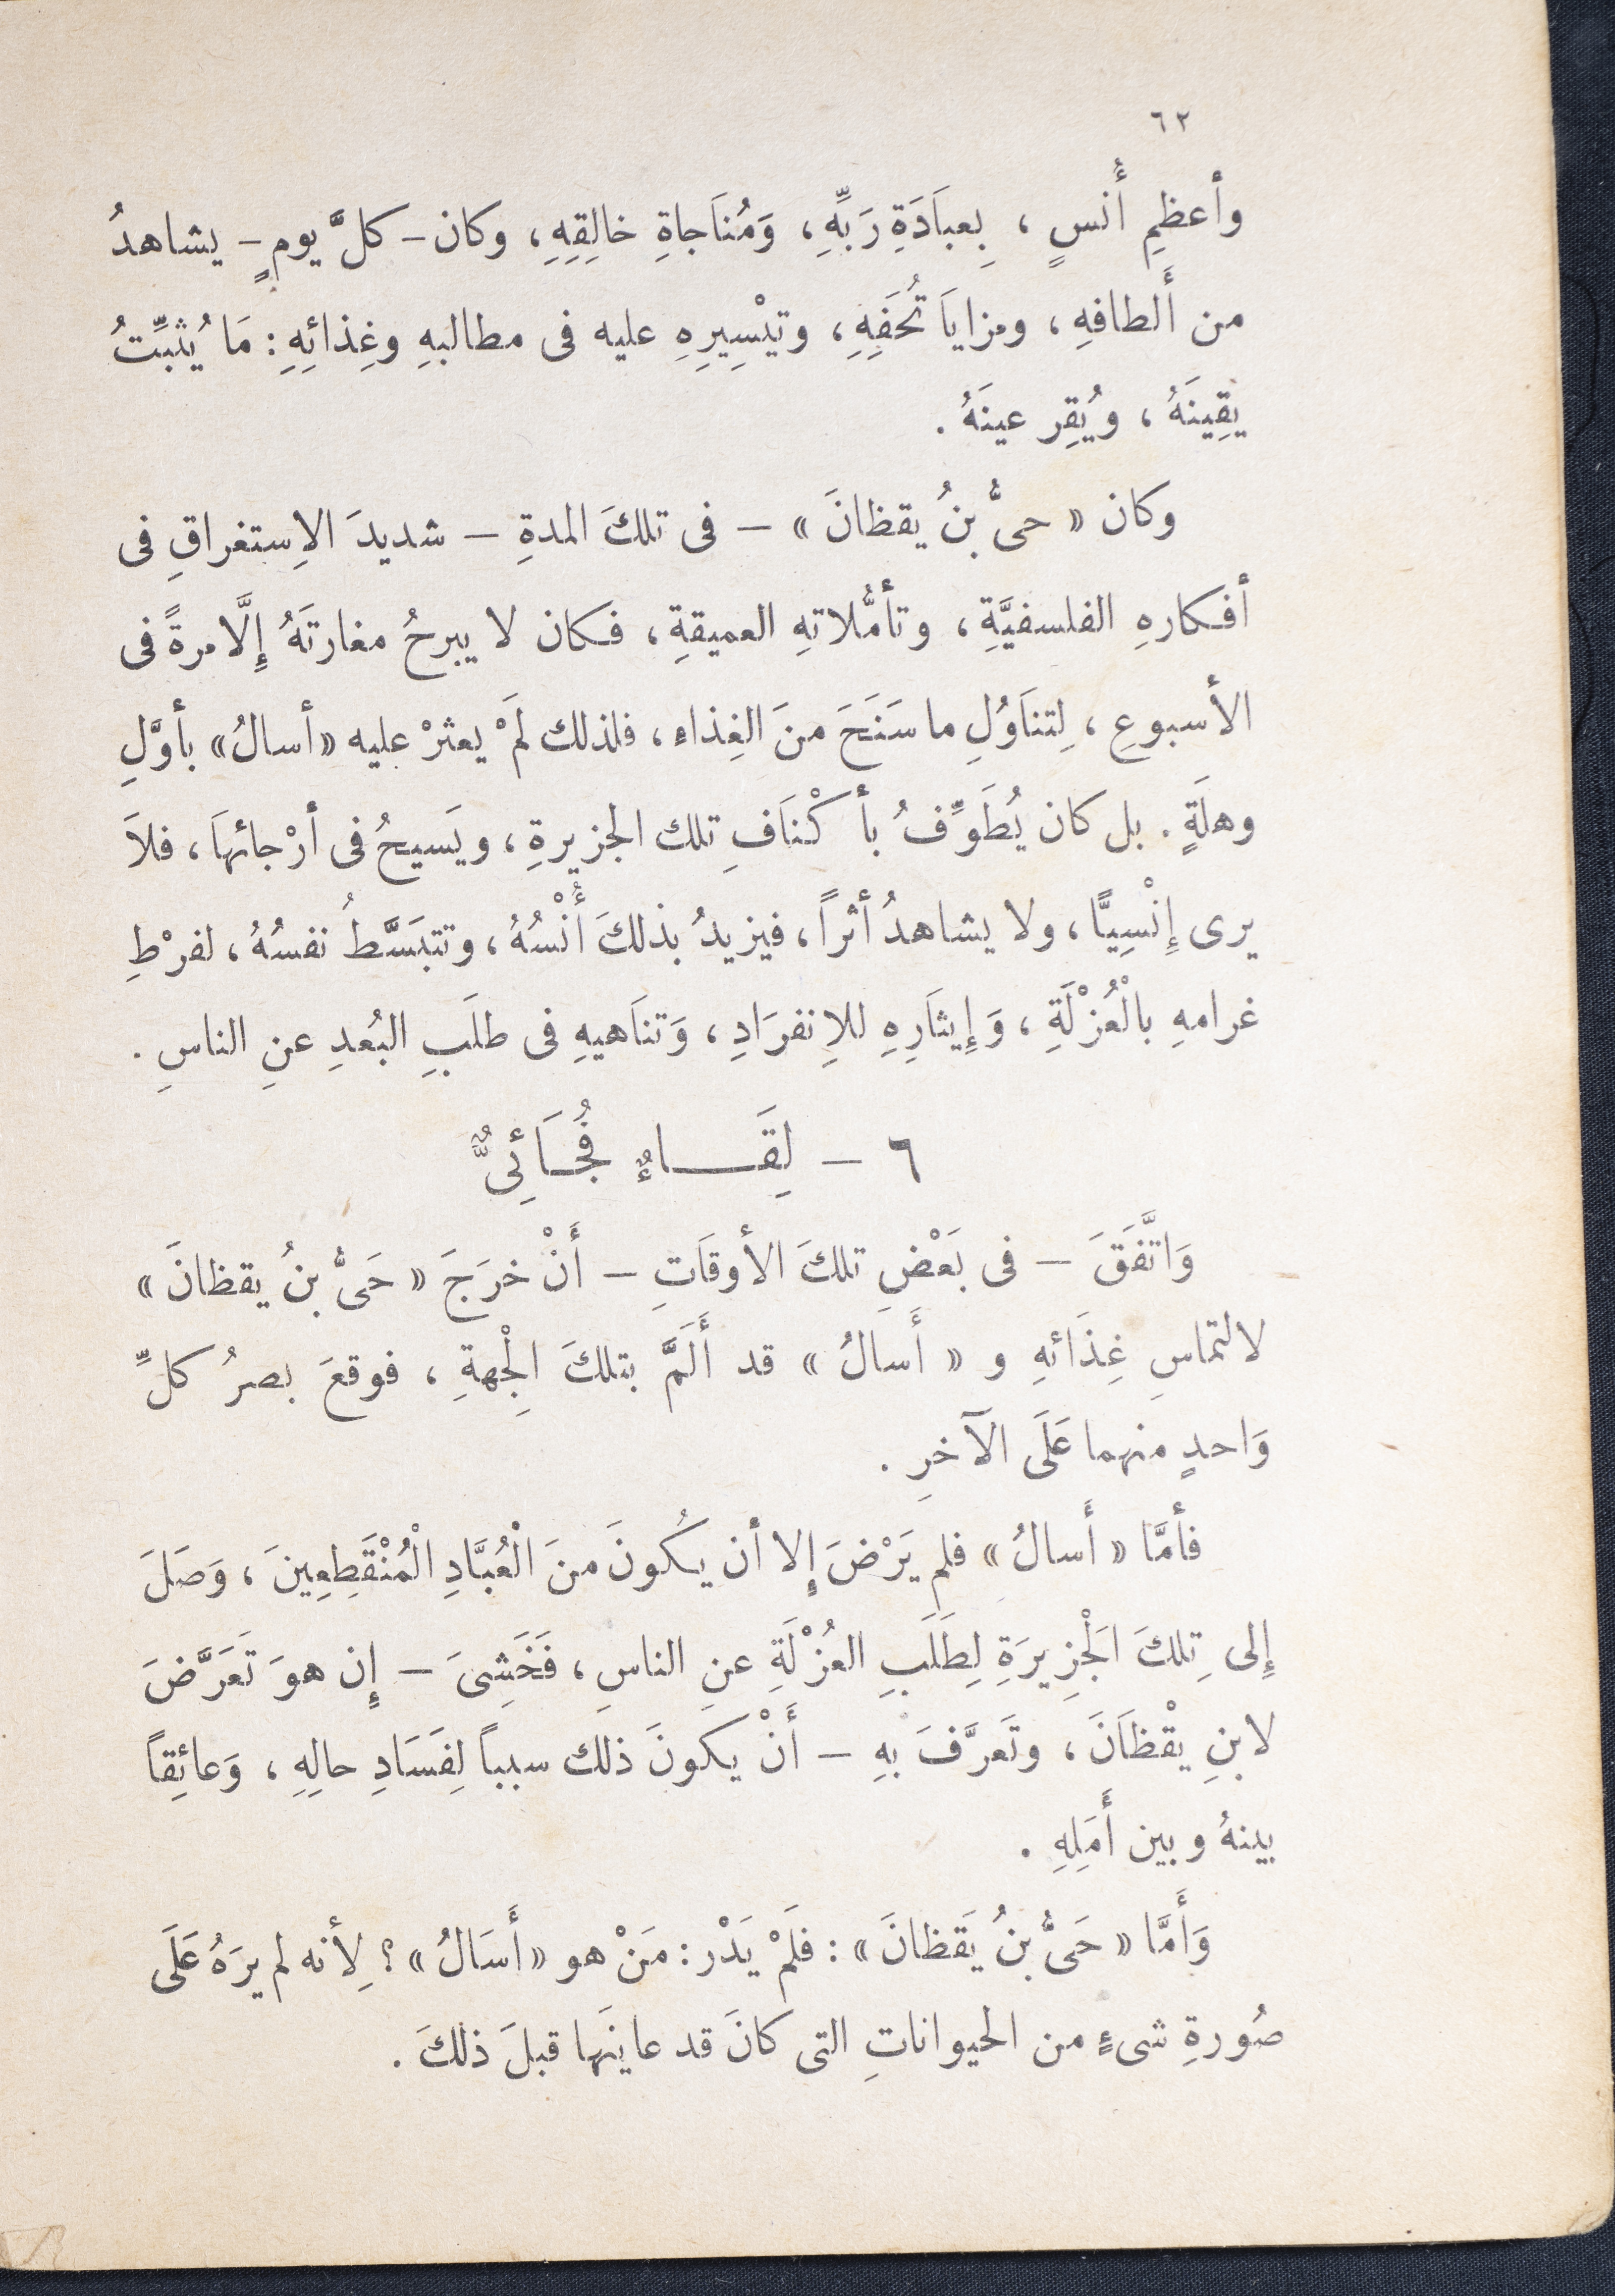 ٦٢
وأعظمِ أُنسٍ ، بِعبَادَةِ رَبِّهِ ، وَمُنَاجاةِ خالِقِهِ ، وكان - كلَّ يومٍ - يشاهدُ
من أَلطافهِ ، ومزايَا تُحَفِهِ ، وتيْسِيرِهِ عليه فى مطالبهِ وغِذائِهِ : مَا يُثبِّتُ
يقِينَهُ ، ويُقِر عينَهُ .
وكان « حىُّ بنُ يقظانَ » – فى تلكَ المدةِ – شديدَ الاِستغراقِ فى
أفكارهِ الفلسفيَّةِ ، وتأمُّلاتهِ العميقةِ ، فكان لا يبرحُ مغارتَهُ إِلَّا مرةً فى
الأسبوعِ ، لِتنَاوُلِ ما سَنَحَ منَ الغِذاءِ ، فلذلك لَمْ يعثرْ عليه « أسالُ » بأوَّلِ
وهلَةٍ . بل كان يُطَوِّفُ بأكْنَافِ تلك الجزيرةِ ، ويَسيحُ فى أرْجائهَا ، فلاَ
يرى إِنْسِيًّا ، ولا يشاهدُ أثراً ، فيزيدُ بذلكَ أُنْسُهُ ، وتتبَسَّطُ نفسُهُ ، لفرْطِ
غرامهِ بالْعُزْلَةِ ، وَإِيثَارِهِ للاِنفرَادِ ، وَتنَاهيهِ فى طلَبِ البُعدِ عنِ الناسِ .
٦ – لِقَـــاءٌ فُجَـائِىٌّ
وَاتَّفَقَ – فى بَعْضِ تلكَ الأوقَاتِ – أَنْ خرَجَ « حَىُّ بنُ يقظانَ »
لالتماسِ غِذَائهِ و « أَسالُ » قد أَلَمَّ بتلكَ الْجِهةِ ، فوقعَ بصرُ كلِّ
وَاحدٍ منهما عَلَى الآخرِ .
فأمَّا « أَسالُ » فلم يَرْضَ إِلا أن يكُونَ منَ الْعُبَّادِ الْمُنْقَطِعِينَ ، وَصَلَ
إِلى تِلكَ الْجَزِيرَةِ لِطَلَبِ العُزْلَةِ عنِ الناسِ ، فَخَشِىَ – إِن هوَ تَعَرَّضَ
لابنِ يقْظَانَ ، وتَعرَّفَ بهِ – أَنْ يكونَ ذلك سبباً لِفَسَادِ حالِهِ ، وَعائِقاً
بينهُ وبين أَمَلِهِ .
وَأَمَّا « حَىُّ بنُ يَقظانَ » : فلَمْ يَدْر : مَنْ هو « أَسَالُ » ؟ لِأنه لم يرَهُ عَلَى
صُورةِ شىءٍ من الحيواناتِ التى كانَ قد عاينَها قبلَ ذلكَ .